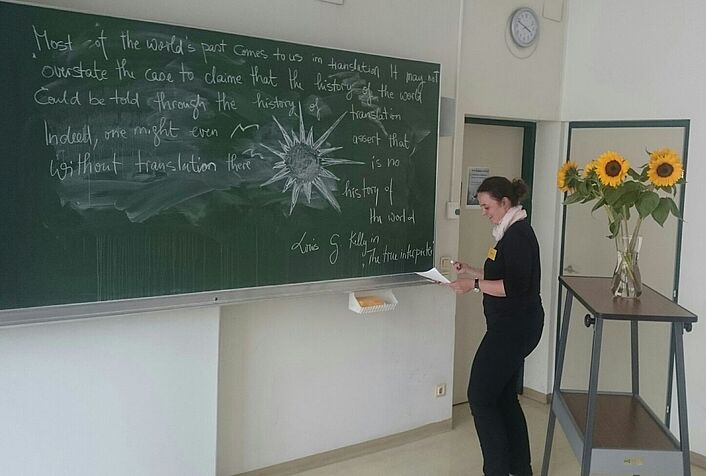 Most of the world's past comes to us in translation It may not
overstate the case to claime that the history of the world
Could be told through the history of translation
Indeed, one might even assert that
without translation there is no
history of
the world
Louis G Kelly in
"The true interpreter